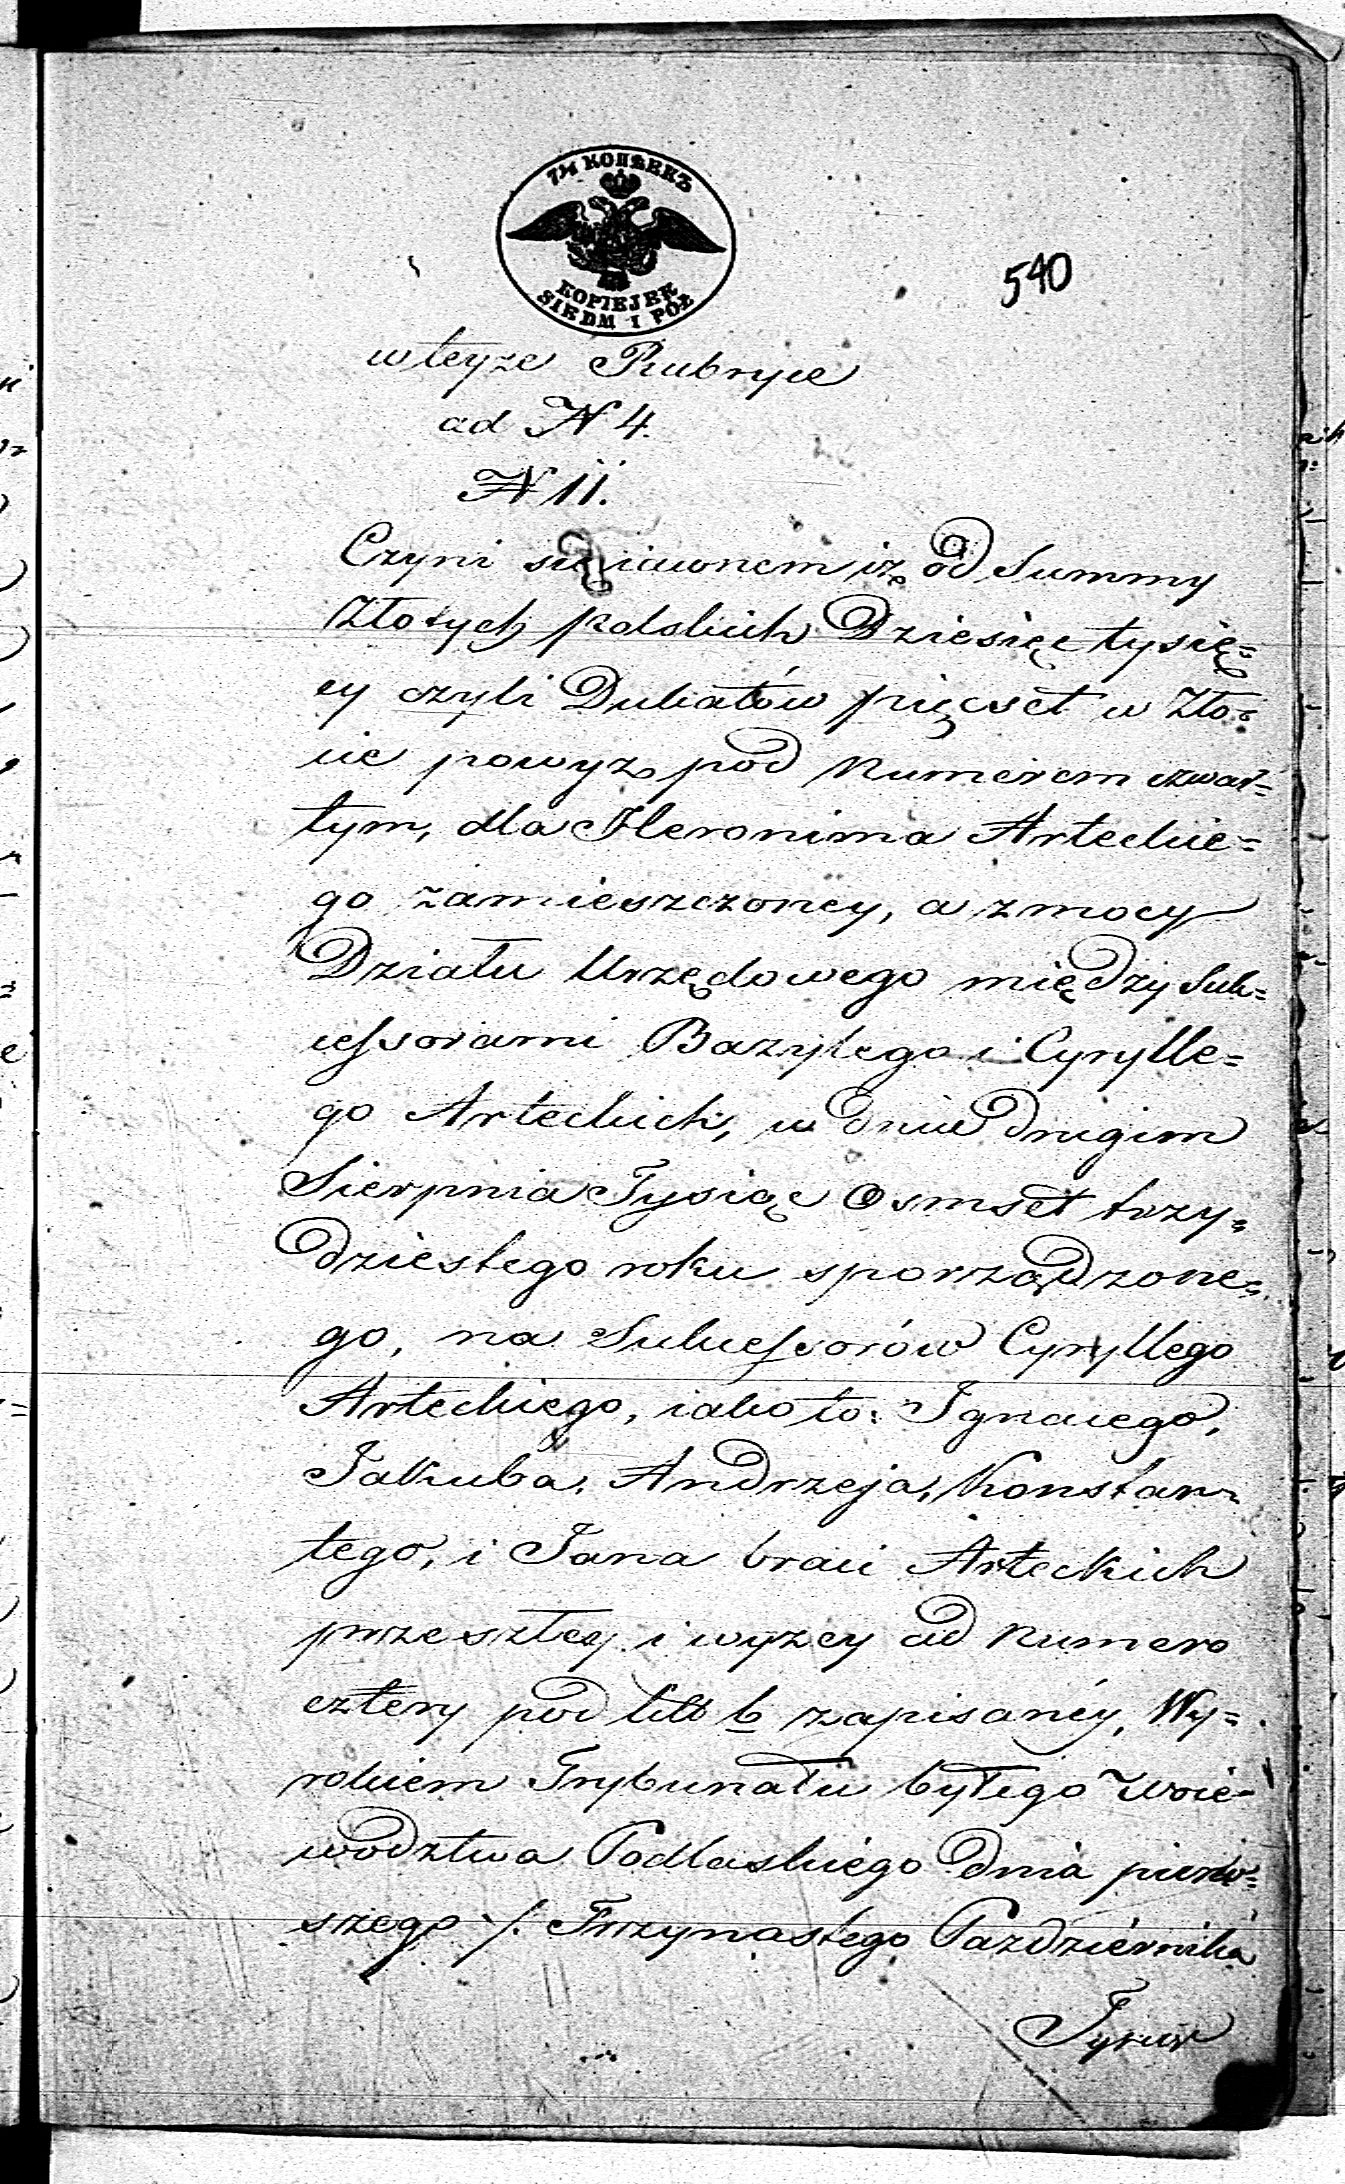 7½ КОПѢЕКЪ
KOPIEJEK
SIEDM I PÓŁ
540
w teyże Rubryce
ad N 4.
N 11.
Czyni się iawnem iż od Summy
Złotych polskich Dziesięć tysię=
cy czyli Dukatów pięćset w Zło=
cie powyż pod Numerem czwar=
tym, dla Heronima Arteckie=
go zamieszczoney, a z mocy
Działu Urzędowego między Suk=
cessorami Bazylego i Cyrylle=
go Arteckich, w dniu drugim
Sierpnia Tysiąc Osmset trzy=
dziestego roku sporządzone=
go, na Sukcessorów Cyryllego
Arteckiego, iako to: Ignacego,
Jakuba, Andrzeja, Konstan=
tego, i Jana braci Arteckich
przeszłey i wyżey ad Numero
cztery pod litt b zapisaney, Wy=
rokiem Trybunału byłego Woie=
wodztwa Podlaskiego dnia pierw=
szego /. Trzynastego Pazdziernika